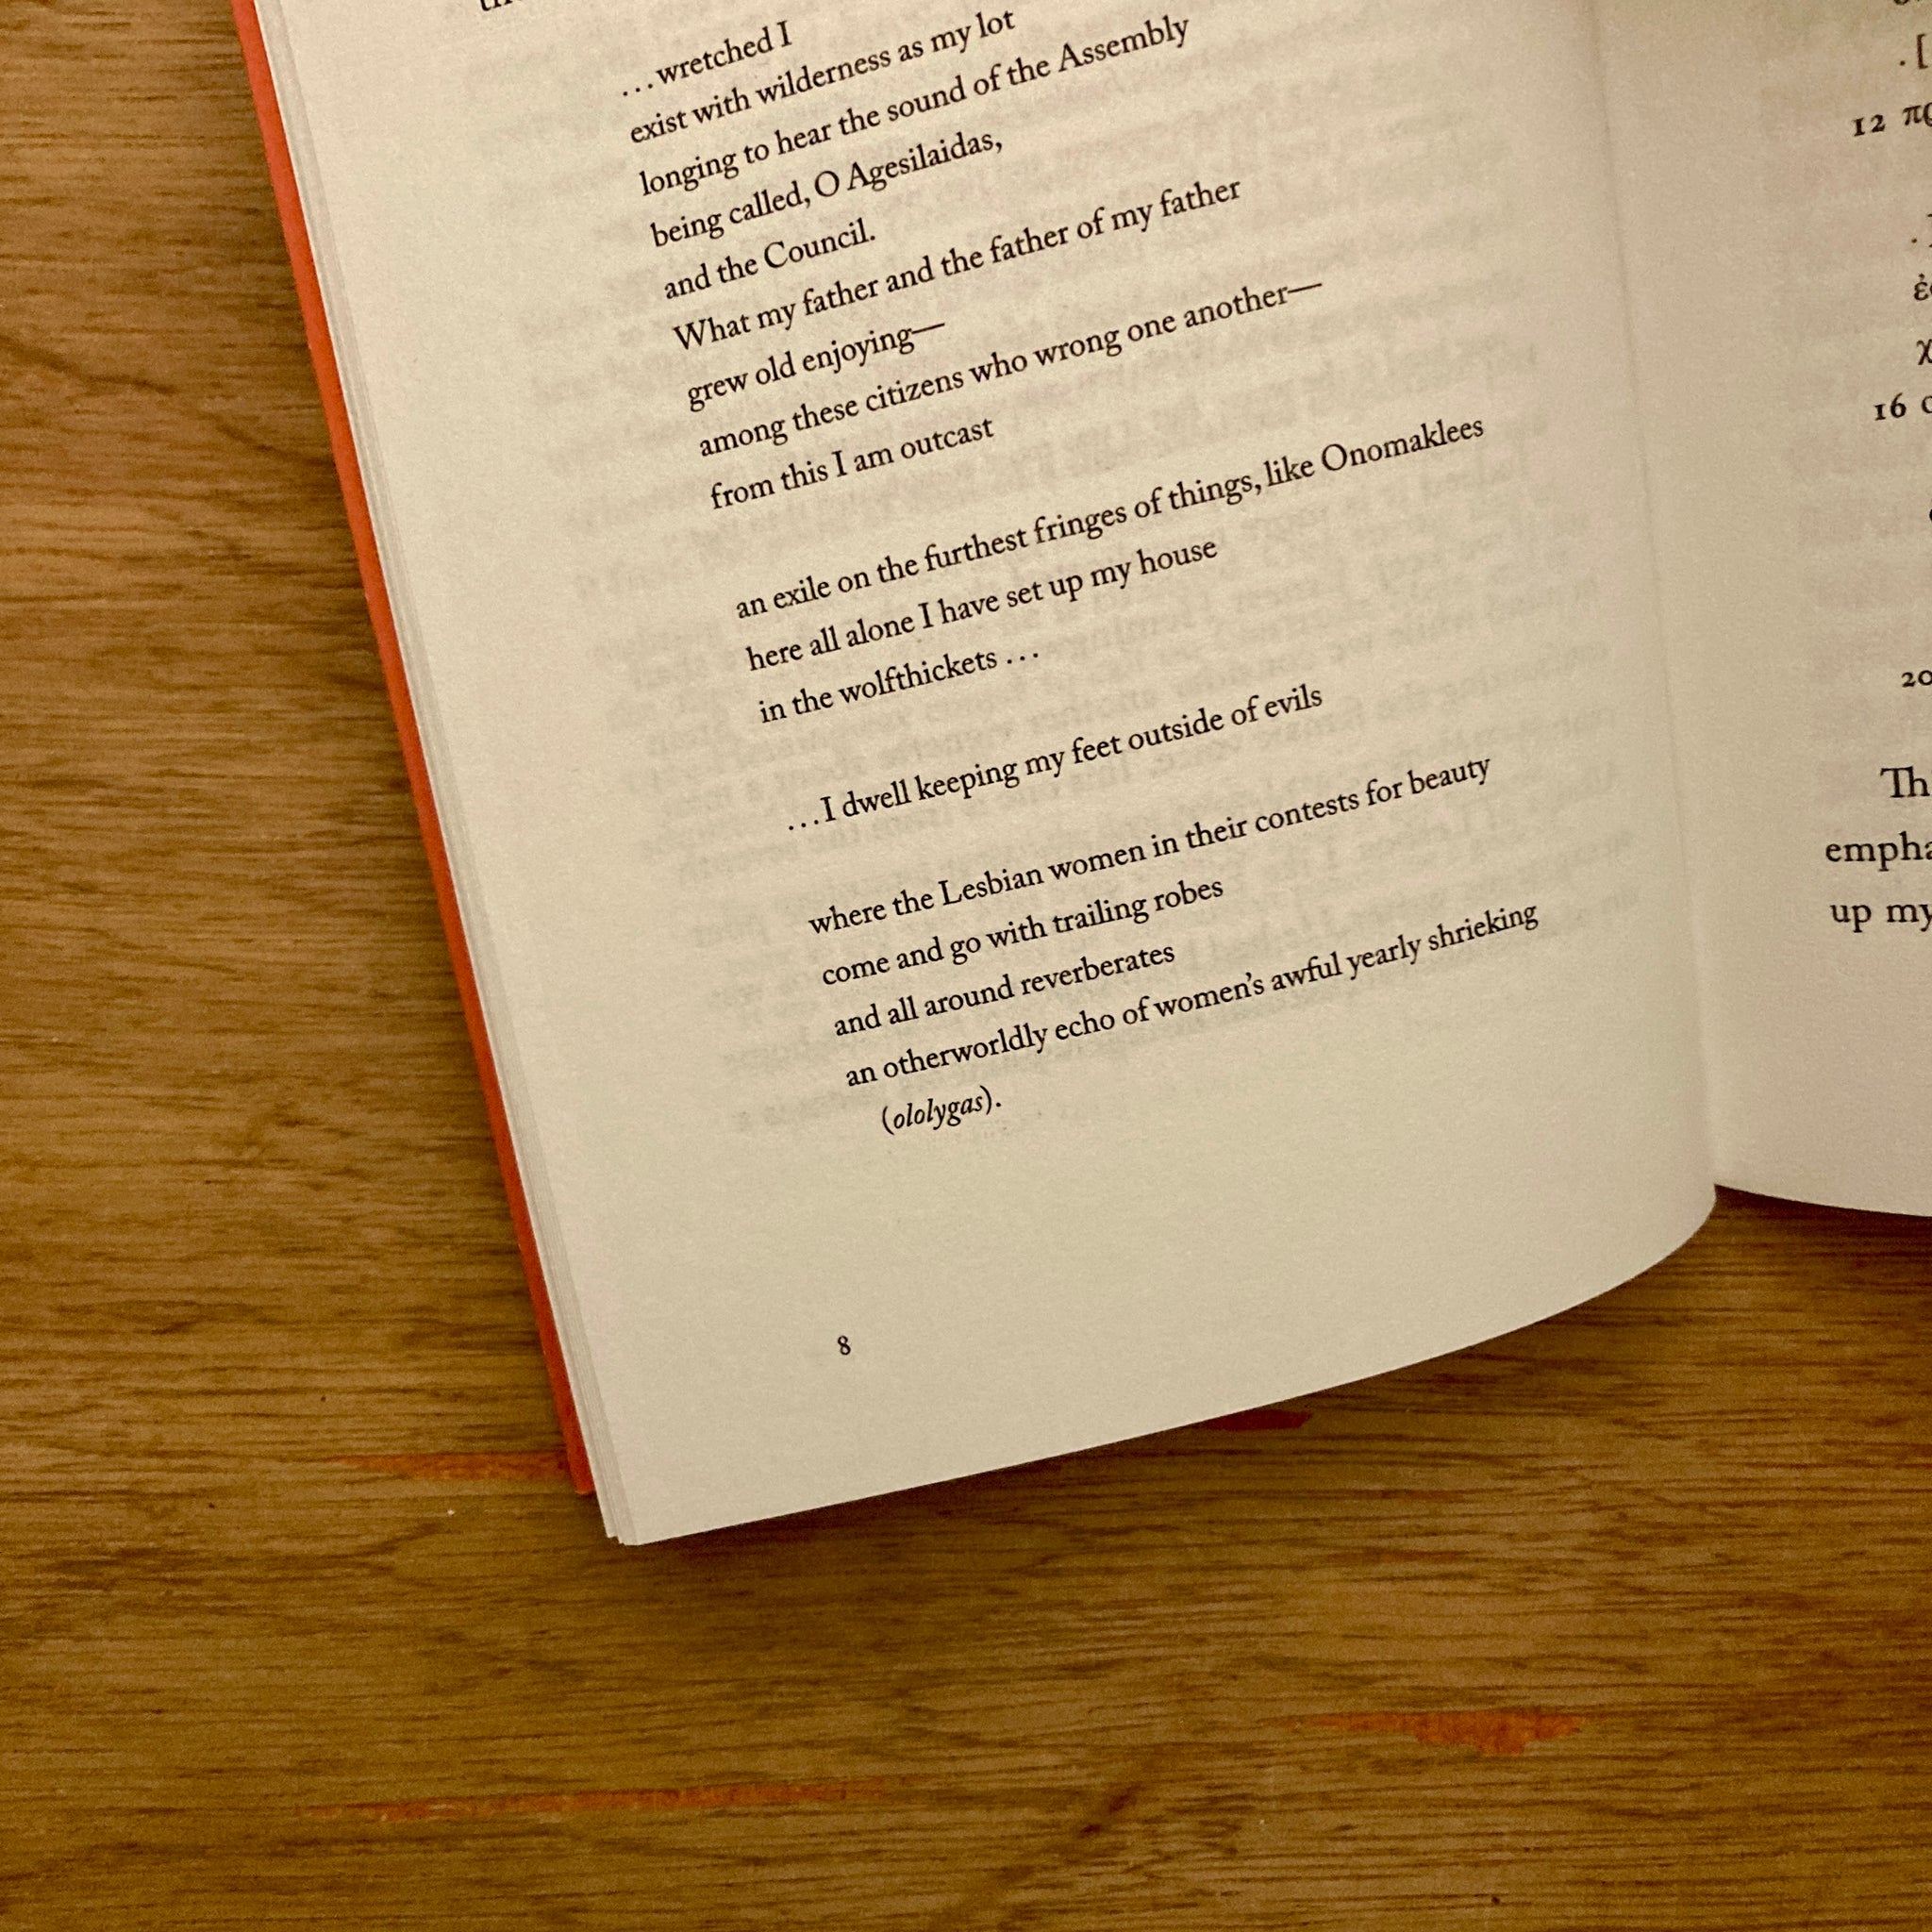 …wretched I
exist with wilderness as my lot
longing to hear the sound of the Assembly
being called, O Agesilaidas,
and the Council.
What my father and the father of my father
grew old enjoying—
among these citizens who wrong one another—
from this I am outcast
an exile on the furthest fringes of things, like Onomaklees
here all alone I have set up my house
in the wolfthickets …
…I dwell keeping my feet outside of evils
where the Lesbian women in their contests for beauty
come and go with trailing robes
and all around reverberates
an otherworldly echo of women's awful yearly shrieking
(ololygas).
8
. [
12
16
20
up my